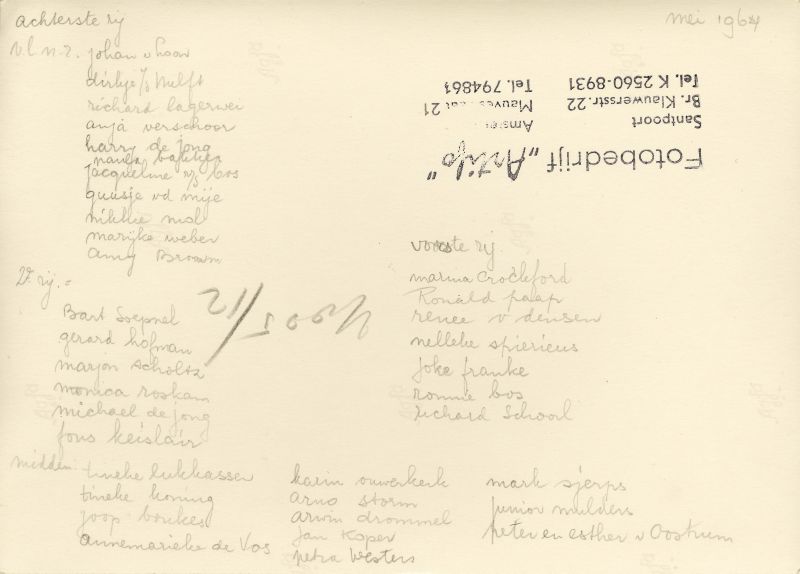 achterste rij
mei 1964
v.l.n.r. johan v Loon
dirkje v/d Hulft
richard lagerwei
anja verschoor
harry de jong
paula bakker
jacqueline v/d bos
guusje vd mije
nikkie mol
marijke weber
Amy Brouwn
Fotobedrijf „Artifo"
Santpoort
Br. Klauwersstr. 22
Tel. K 2560-8931
Mauves 21
Tel. 794861
2e rij.=
Bart Soepnel
gerard hofman
marjon scholtz
monica roskam
michael de jong
fons keislair
voorste rij.
marina Crockford
Ronald paap
renee v densen
nelleke spiericus
Joke franke
ronnie bos
richard Schoorl
midden:
tineke lukkassen
tineke koning
joop boukes
annemarieke de Vos
karin ouwerkerk
arno storm
arwin drommel
Jan Koper
petra Westers
mark sjerps
junior mulders
peter en esther v Oostrum